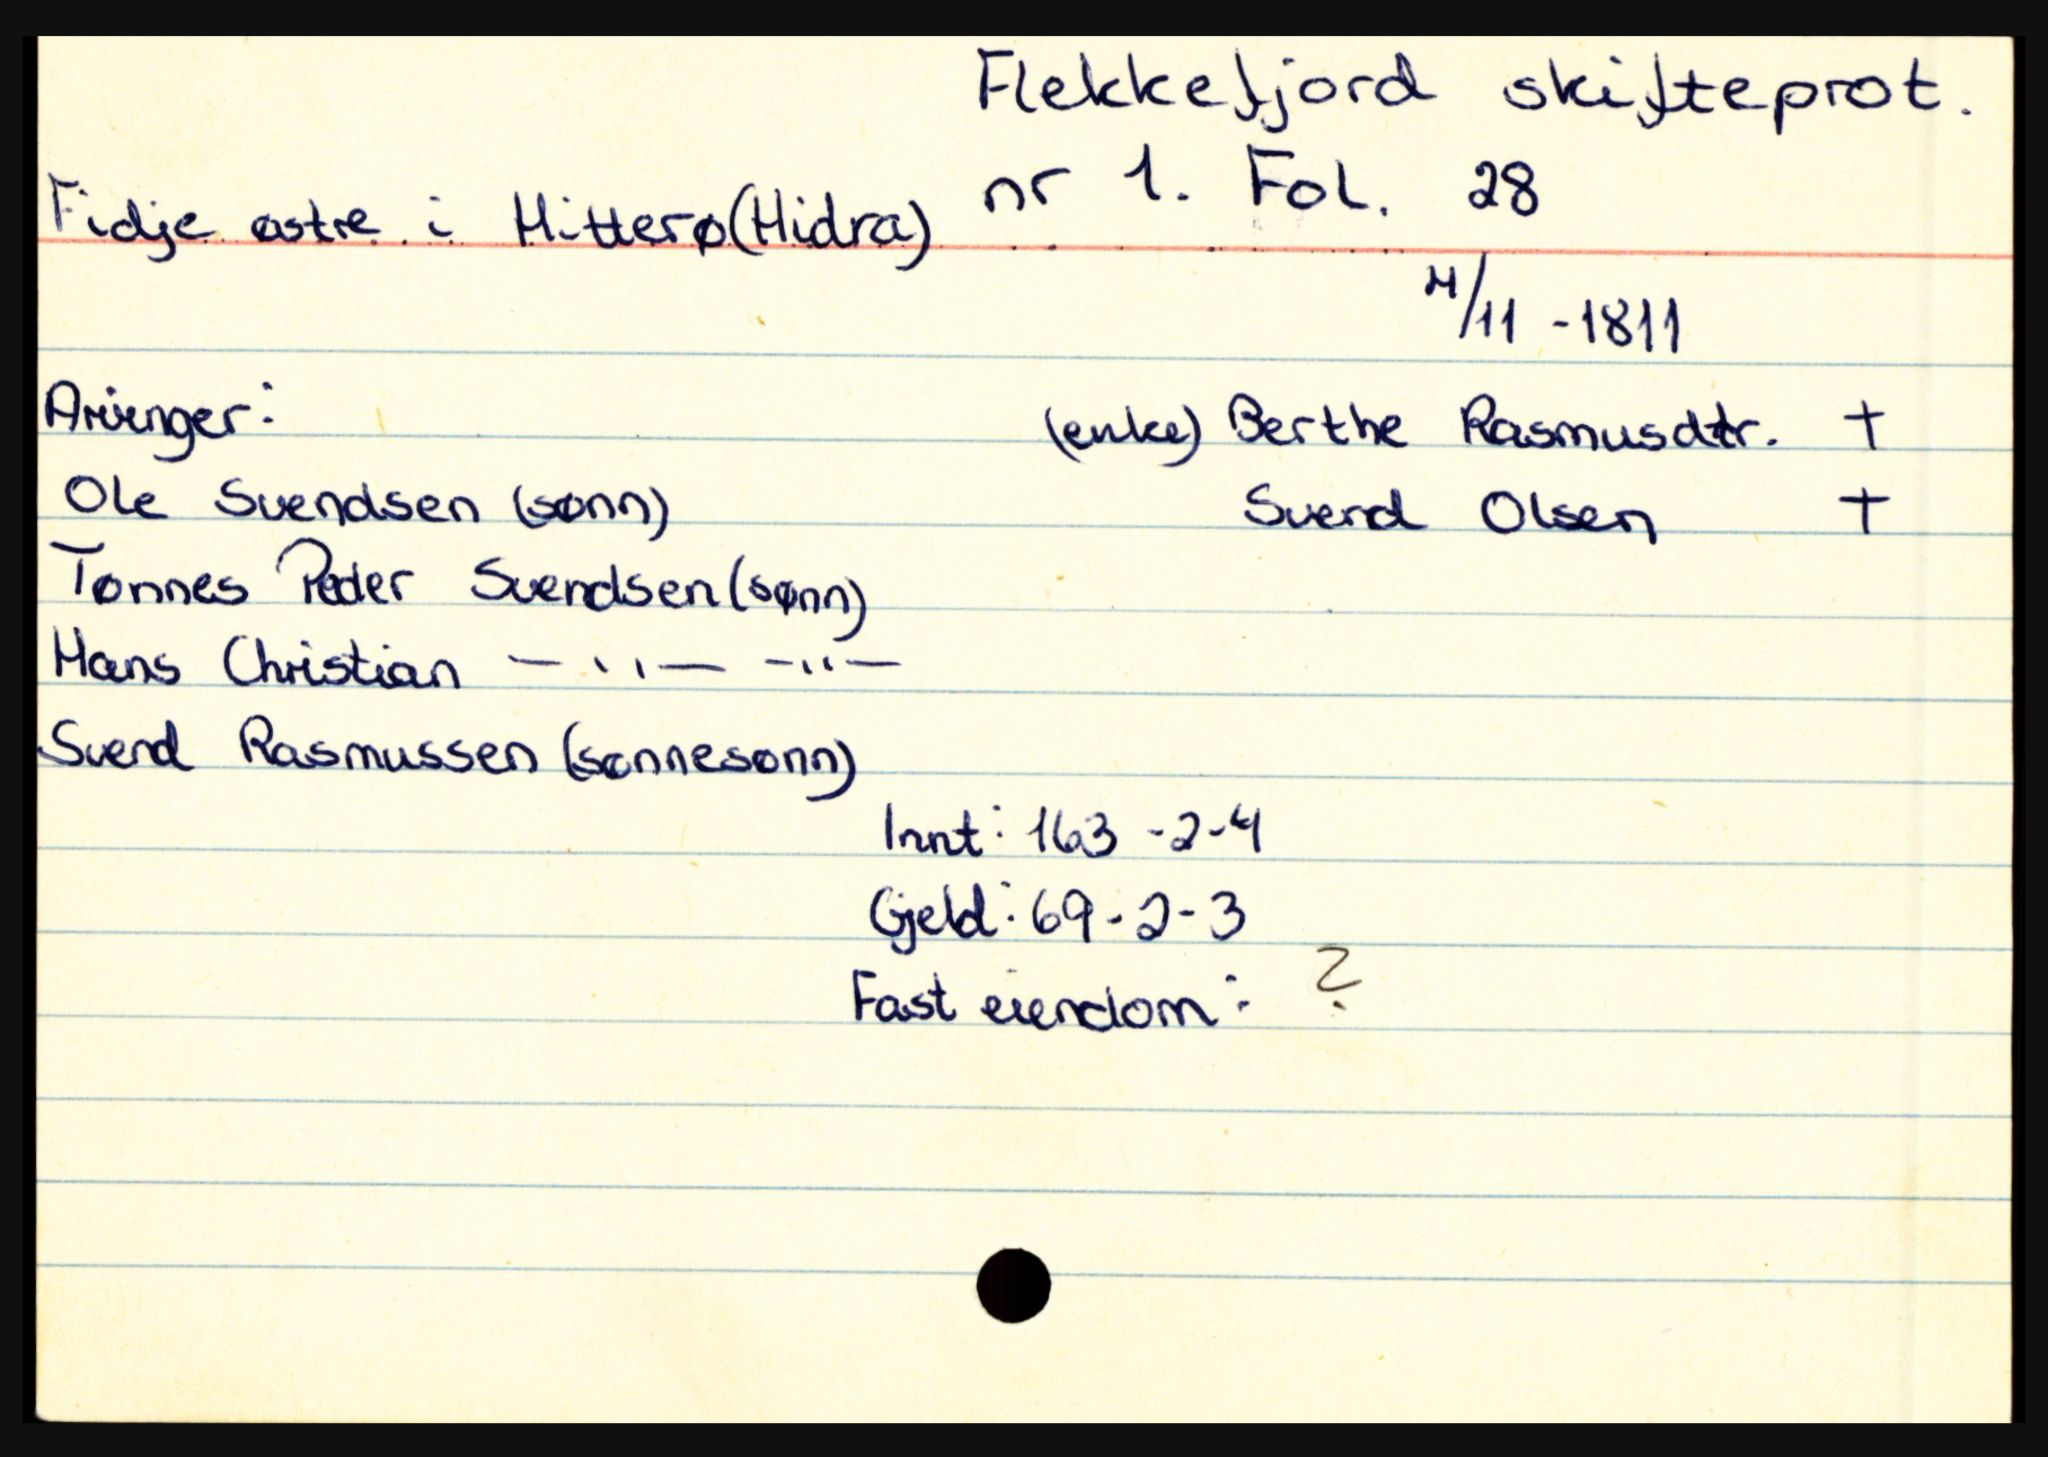 Flekkefjord skifteprot.
nr 1. Fol. 28
Fidje østre i Hitterø (Hidra)
4/11 - 1811
Arvinger:
(enke) Berthe Rasmusdtr. †
Ole Svendsen (sønn)
Svend Olsen †
Tønnes Peder Svendsen (sønn)
Hans Christian —〃— —〃—
Svend Rasmussen (sønnesønn)
Innt: 163 - 2 - 4
Gjeld: 69 - 2 - 3
Fast eiendom: ?